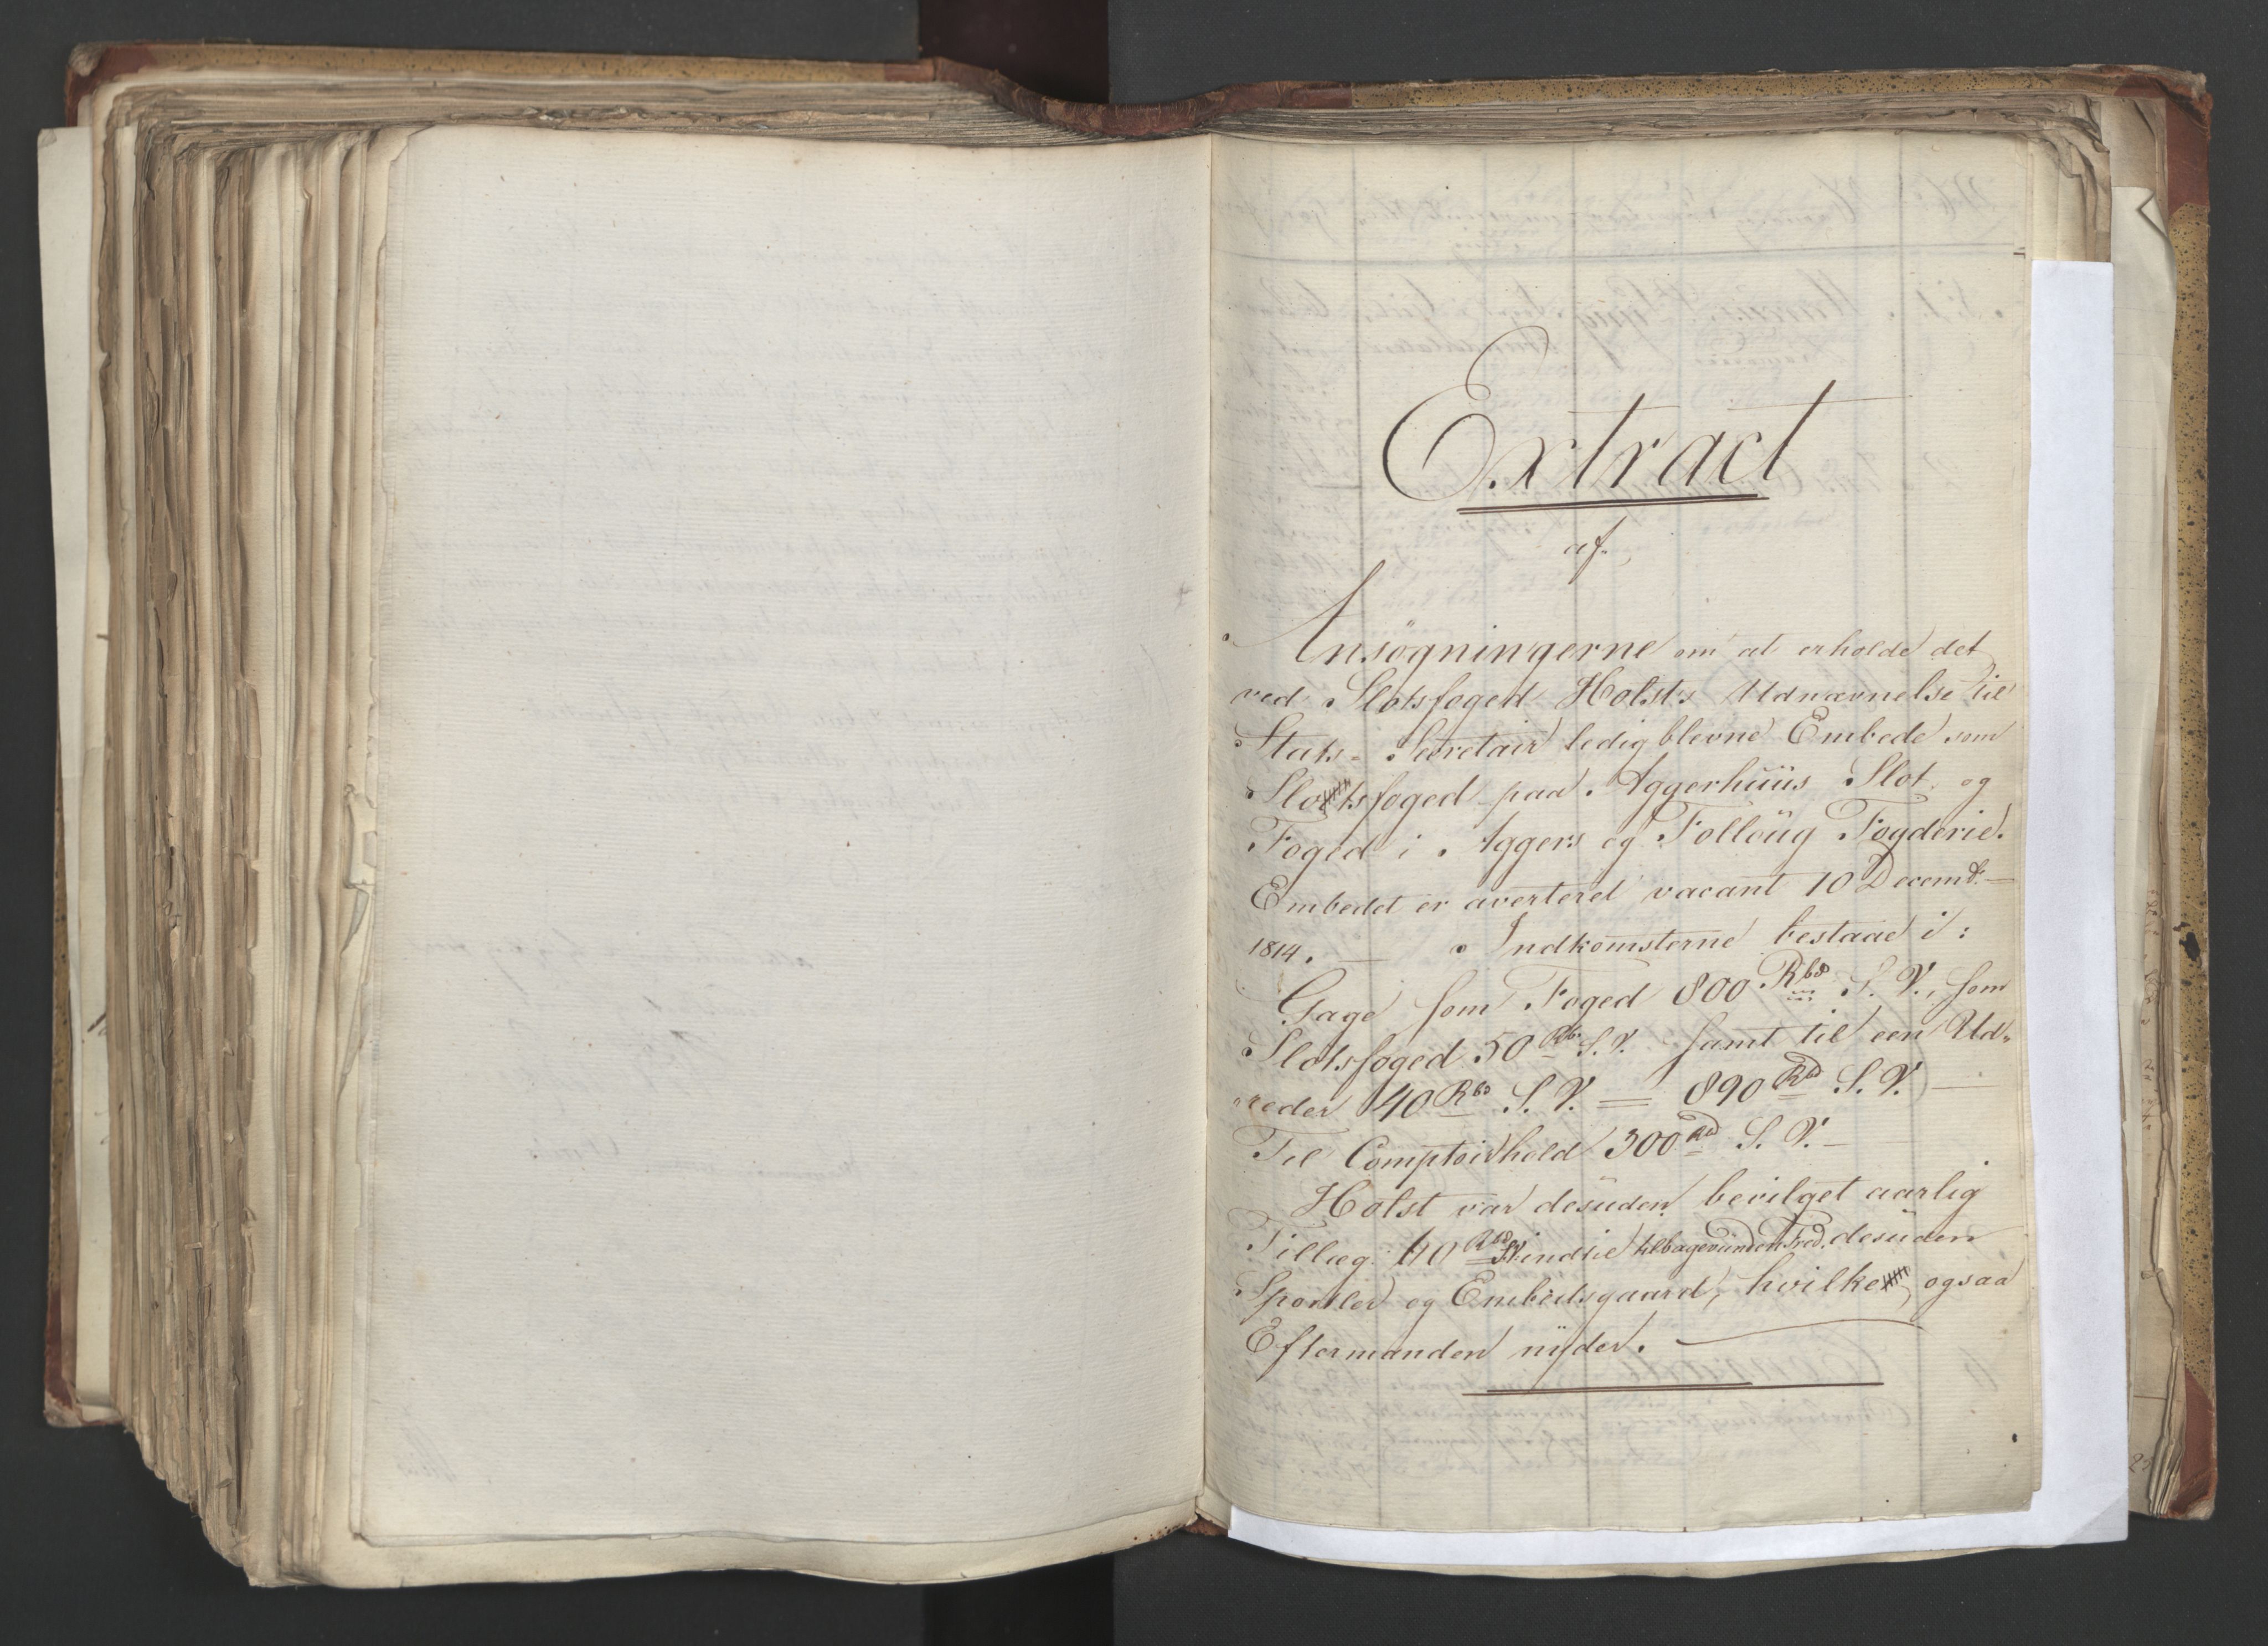 Extract
af
Ansøgningerne om at erholde det
ved Slotsfoged Holsts Udnævnelse til
Stats-Secretair ledigblevne Embede som
Slotsfoged paa Aggerhuus Slot og
Foged i Aggers og Folloug Fogderie.
Embedet er averteret vacant 10 Decembr
1814. — Indkomsterne bestaae i:
Gage som Foged 800 Rbd S. V., som
Slotsfoged 50 Rb S. V. samt til een Ud-
reder 40 Rbd S. V. = 890 Rbd S. V. —
Til Comptoirhold 300 Rd S. V. —
Holst var desuden bevilget aarlig
Tillæg 40 Rbd indtil tilbagevunden Fred, desuden
Sportler og Embedsgaard, hvilke ogsaa
Eftermanden nyder. —